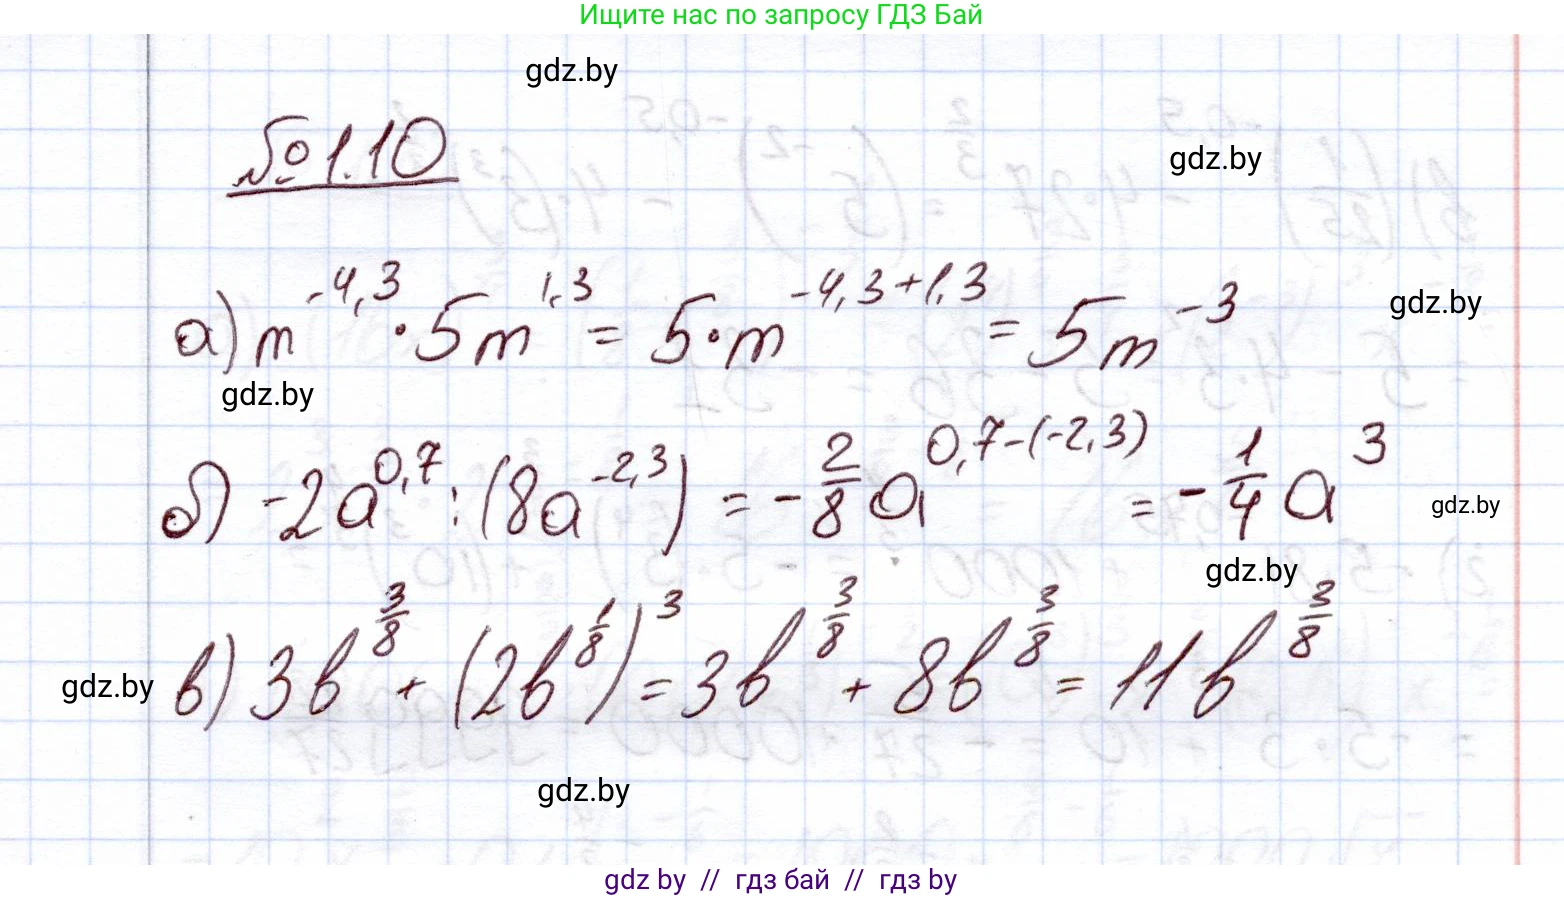 Ищите нас по запросу ГДЗ Бай
gdz.by
№ 1.10
gdz.by
а) m^{-4,3} · 5m^{1,3} = 5 · m^{-4,3+1,3} = 5m^{-3}
gdz.by
gdz.by
б) -2a^{0,7} : (8a^{-2,3}) = -\frac{2}{8}a^{0,7-(-2,3)} = -\frac{1}{4}a^{3}
gdz.by
gdz.by
в) 3b^{\frac{3}{8}} + (2b^{\frac{1}{8}})^{3} = 3b^{\frac{3}{8}} + 8b^{\frac{3}{8}} = 11b^{\frac{3}{8}}
gdz.by
gdz.by
gdz by // гдз бай // гдз by